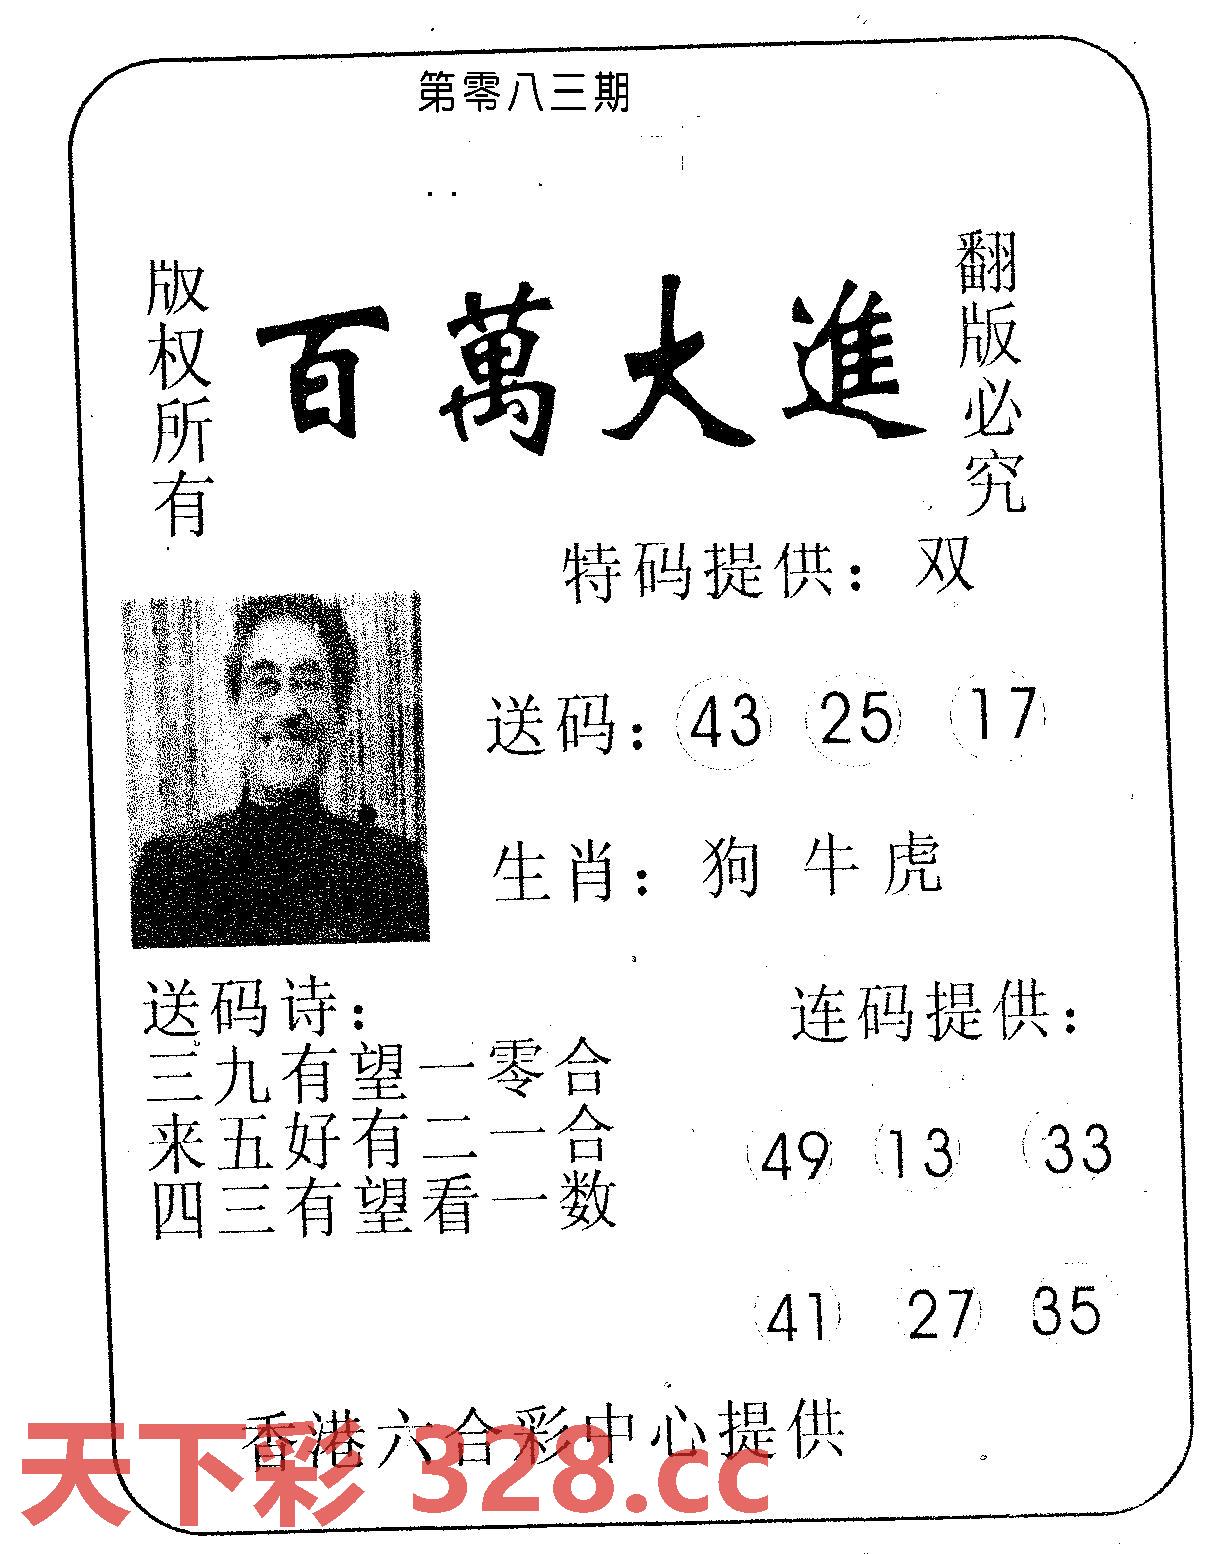 第零八三期
版权所有
百萬大進
翻版必究
特码提供：双
送码：43 25 17
生肖：狗 牛 虎
送码诗：
三九有望一零合
来五好有二一合
四三有望看一数
连码提供：
49 13 33
41 27 35
香港六合彩中心提供
天下彩 328.cc